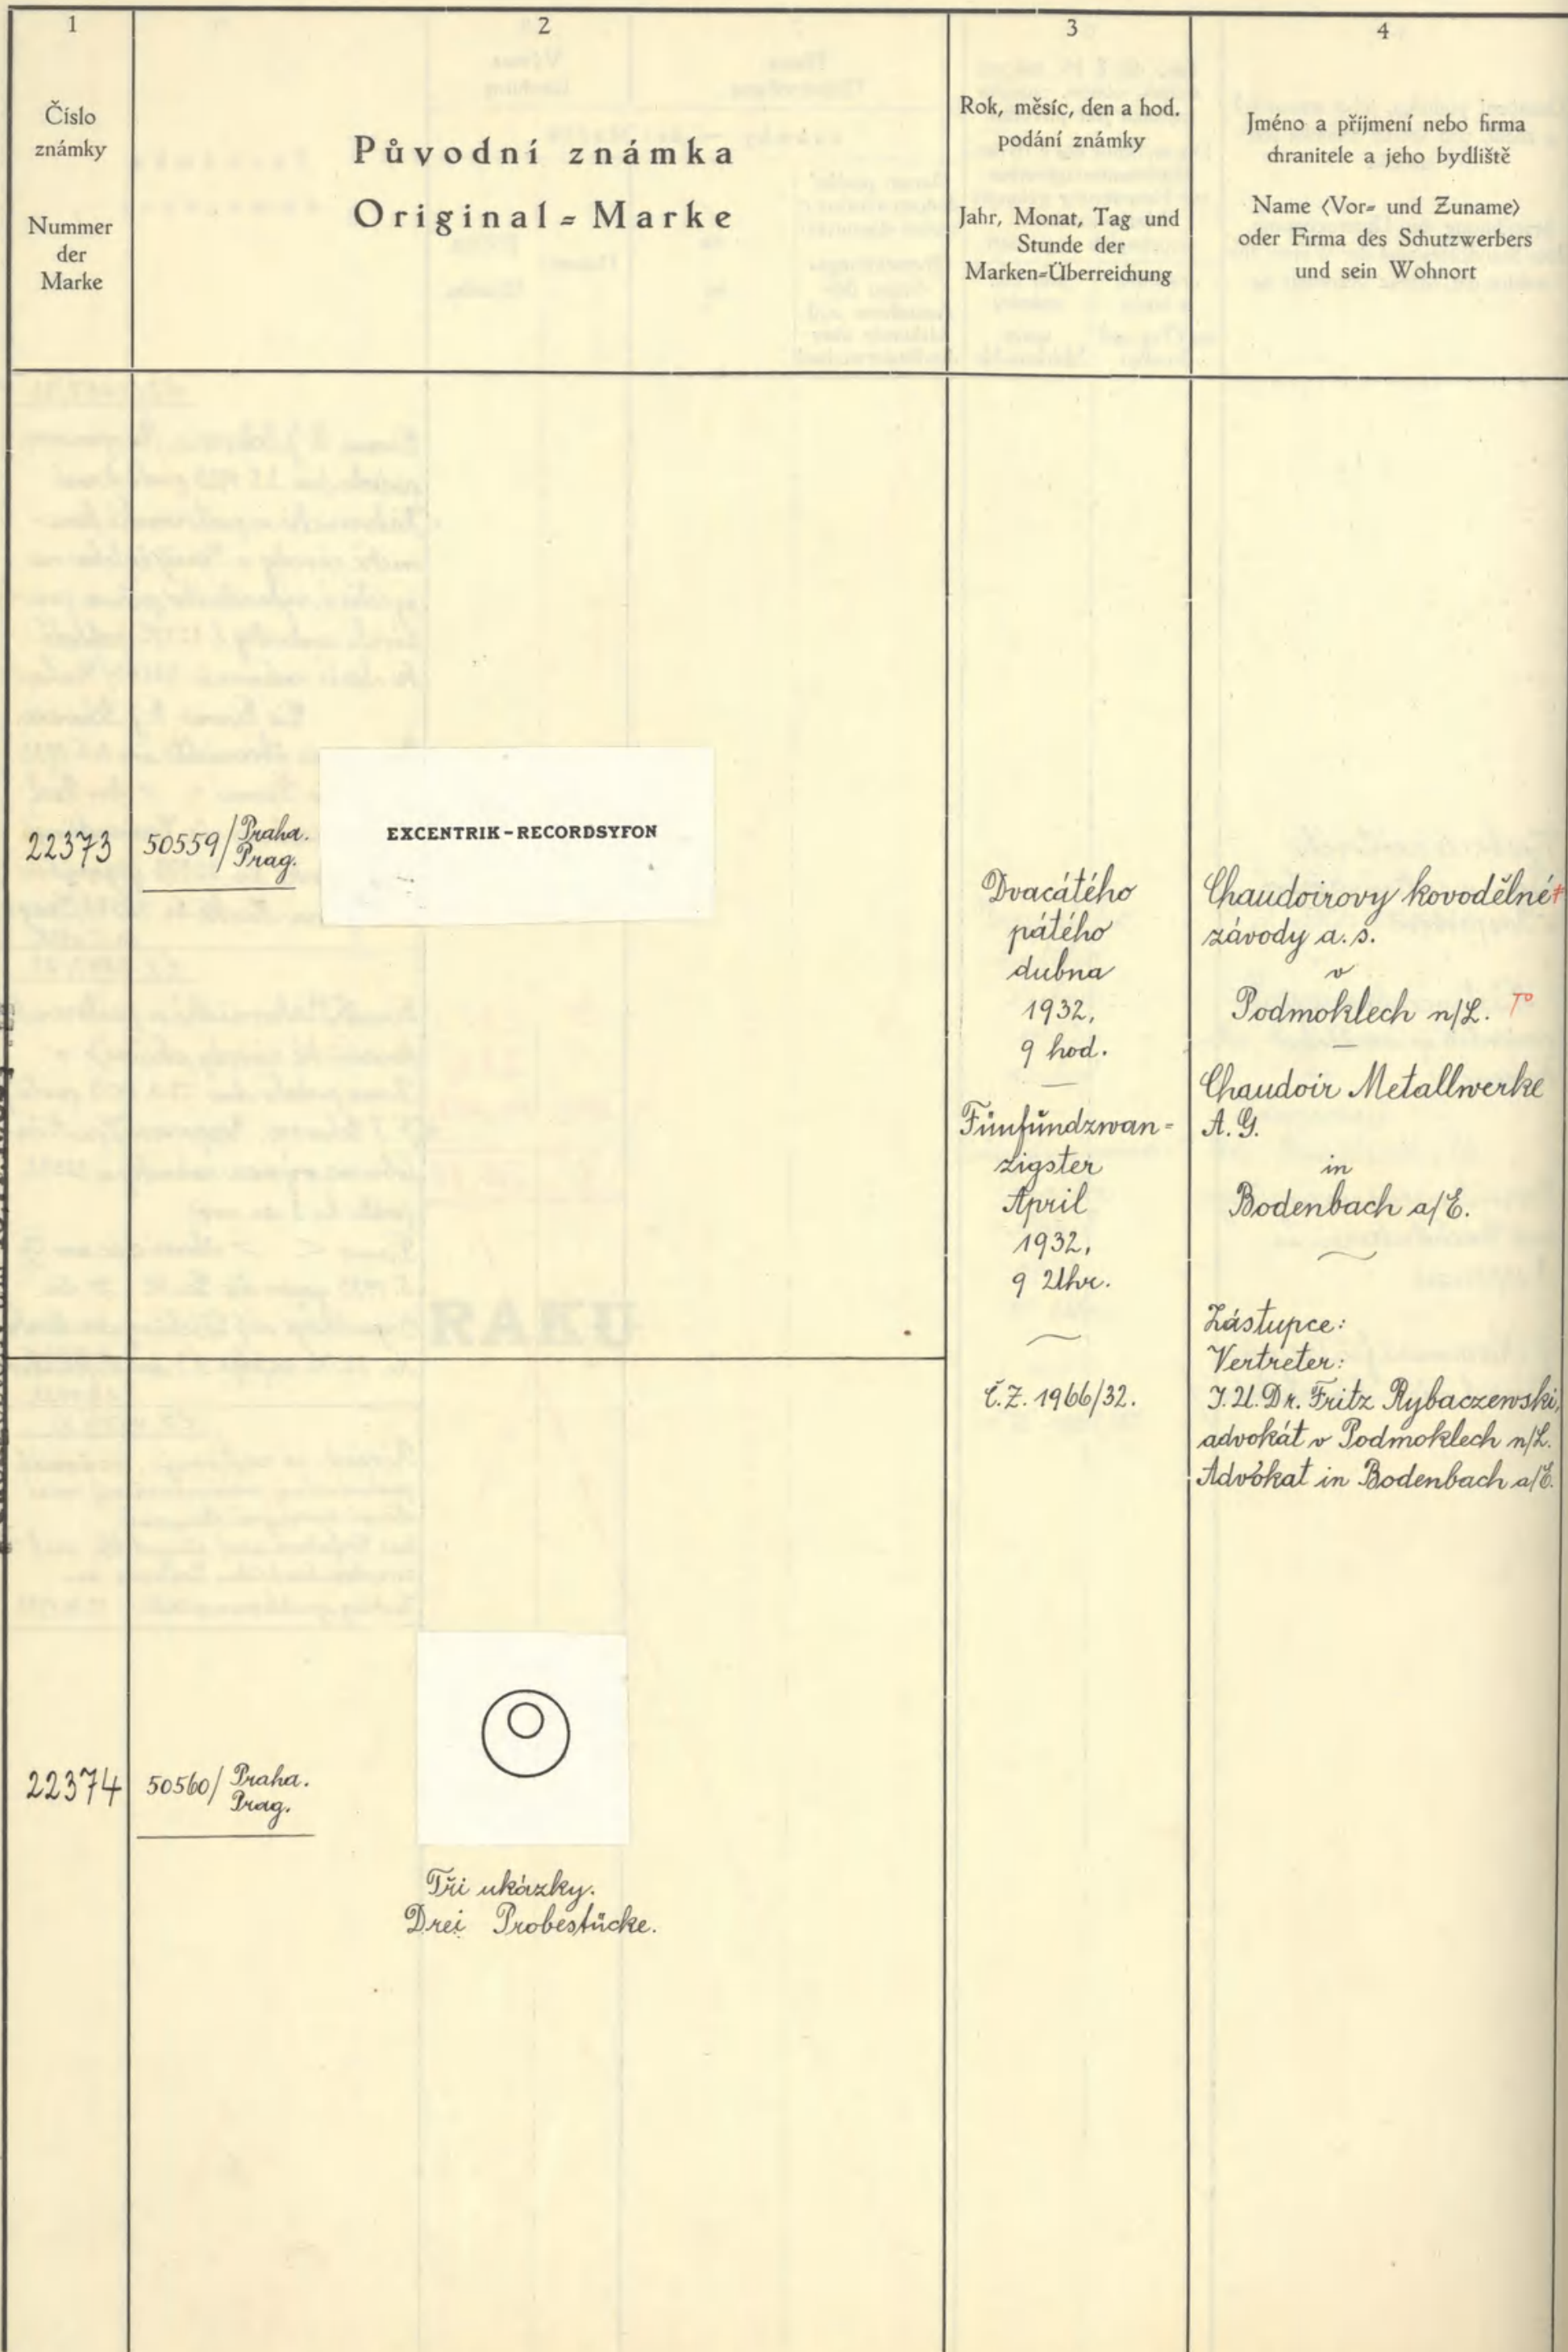 1
Číslo
známky
Nummer
der
Marke
2
Původní známka
Original=Marke
3
Rok, měsíc, den a hod.
podání známky
Jahr, Monat, Tag und
Stunde der
Marken=Überreichung
4
Jméno a příjmení nebo firma
chranitele a jeho bydliště
Name (Vor= und Zuname)
oder Firma des Schutzwerbers
und sein Wohnort
22373
50559/Praha.
Prag.
EXCENTRIK-RECORDSYFON
Dvacátého
pátého
dubna
1932,
9 hod.
Fünfundzwan=
zigster
April
1932,
9 Uhr.
Č.Z. 1966/32.
Chaudoirovy kovodělné
závody a. s.
v
Podmoklech n/L.
Chaudoir Metallwerke
A. G.
in
Bodenbach a/E.
Zástupce:
Vertreter:
J. U. Dr. Fritz Rybaczewski,
advokát v Podmoklech n/L.
Advokat in Bodenbach a/E.
22374
50560/Praha.
Prag.
Tři ukázky.
Drei Probestücke.